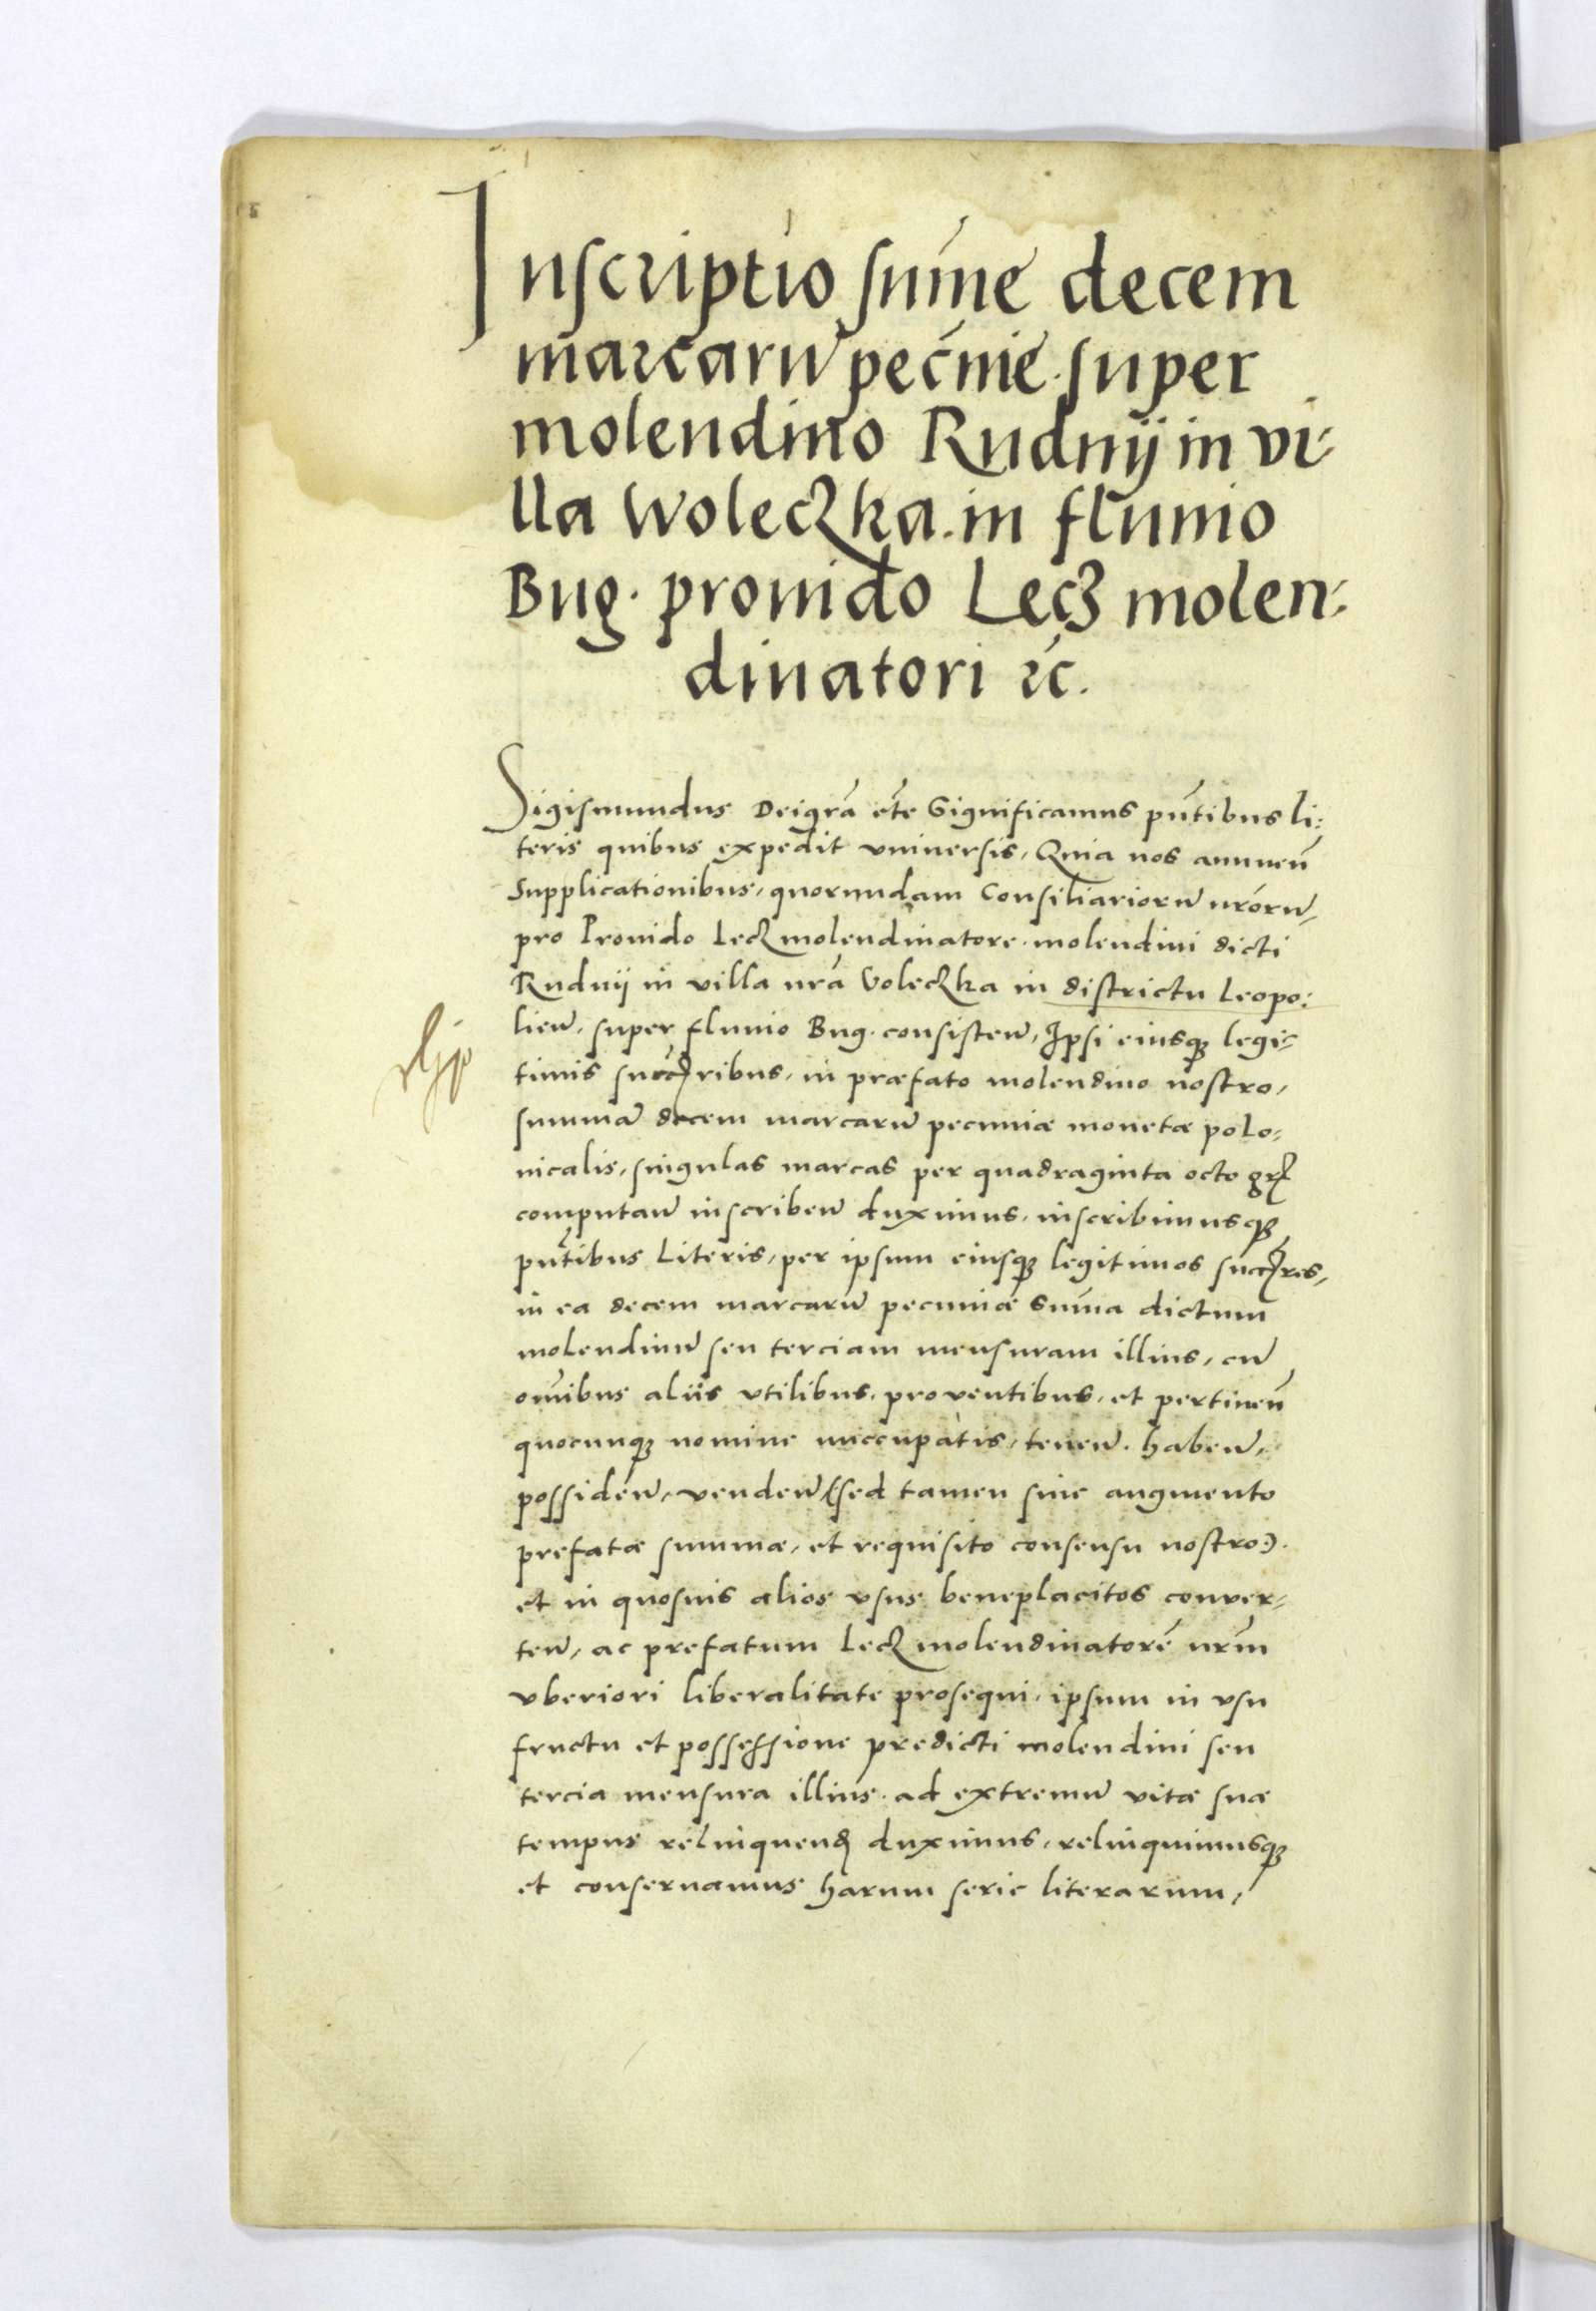 Inscriptio sume̅ decem
marcaru̅ pec̅nie. super
molendino Rudnij in vi-
lla Woleczka. in fluuio
Bug. prouido Lecz molen-
dinatori &c.
Sigismundus Dei gr̅a etc̅ Significamus pn̅tibus li-
teris quibus expedit vniuersis, Quia nos annuen̅
Supplicationibus, quorundam Consiliarioru̅ nr̅oru̅,
pro Prouido Lecz molendinatore. molendini dicti
Rudnij in villa nr̅a Voleczka in districtu Leopo-
lien̅. super fluuio Bug. consisten̅, Ipsi eiusq; legi-
timis succ̅ribus, in præfato molendino nostro,
summa̅ decem marcaru̅ pecuniæ monetæ polo-
nicalis, singulas marcas per quadraginta octo gr̅
computan̅ inscriben̅ duximus, inscribimusq;
pn̅tibus Literis, per ipsum eiusq; legitimos succ̅res,
in ea decem marcaru̅ pecuniæ sum̅a dictum
molendinu̅ seu terciam mensuram illius, cu̅
om̅ibus aliis vtilibus, prouentibus, et pertinen̅
quocunq; nomine nuccupatis, tenen̅. haben̅,
possiden̅, venden̅ (sed tamen sine augmento
prefatæ summæ, et requisito consensu nostro:).
et in quosuis alios vsus beneplacitos conuer-
ten̅, ac prefatum Lecz molendinatore̅ nr̅m
vberiori liberalitate prosequi, ipsum in vsu
fructu et possessione predicti molendini seu
tercia mensura illius. ad extremu̅ vitæ suæ
tempus relinquend̅ duximus, relinquimusq;
et conseruamus harum serie literarum,